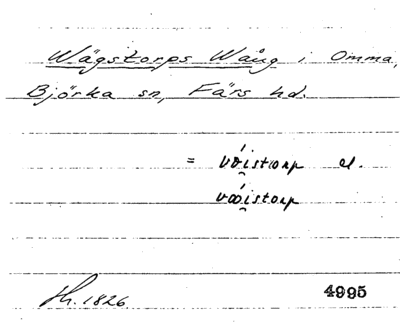 Wägstorps Wång i Omma,
Björka sn, Färs hd.
= vǿistorp el.
vǿistorp
Jh. 1826
4995